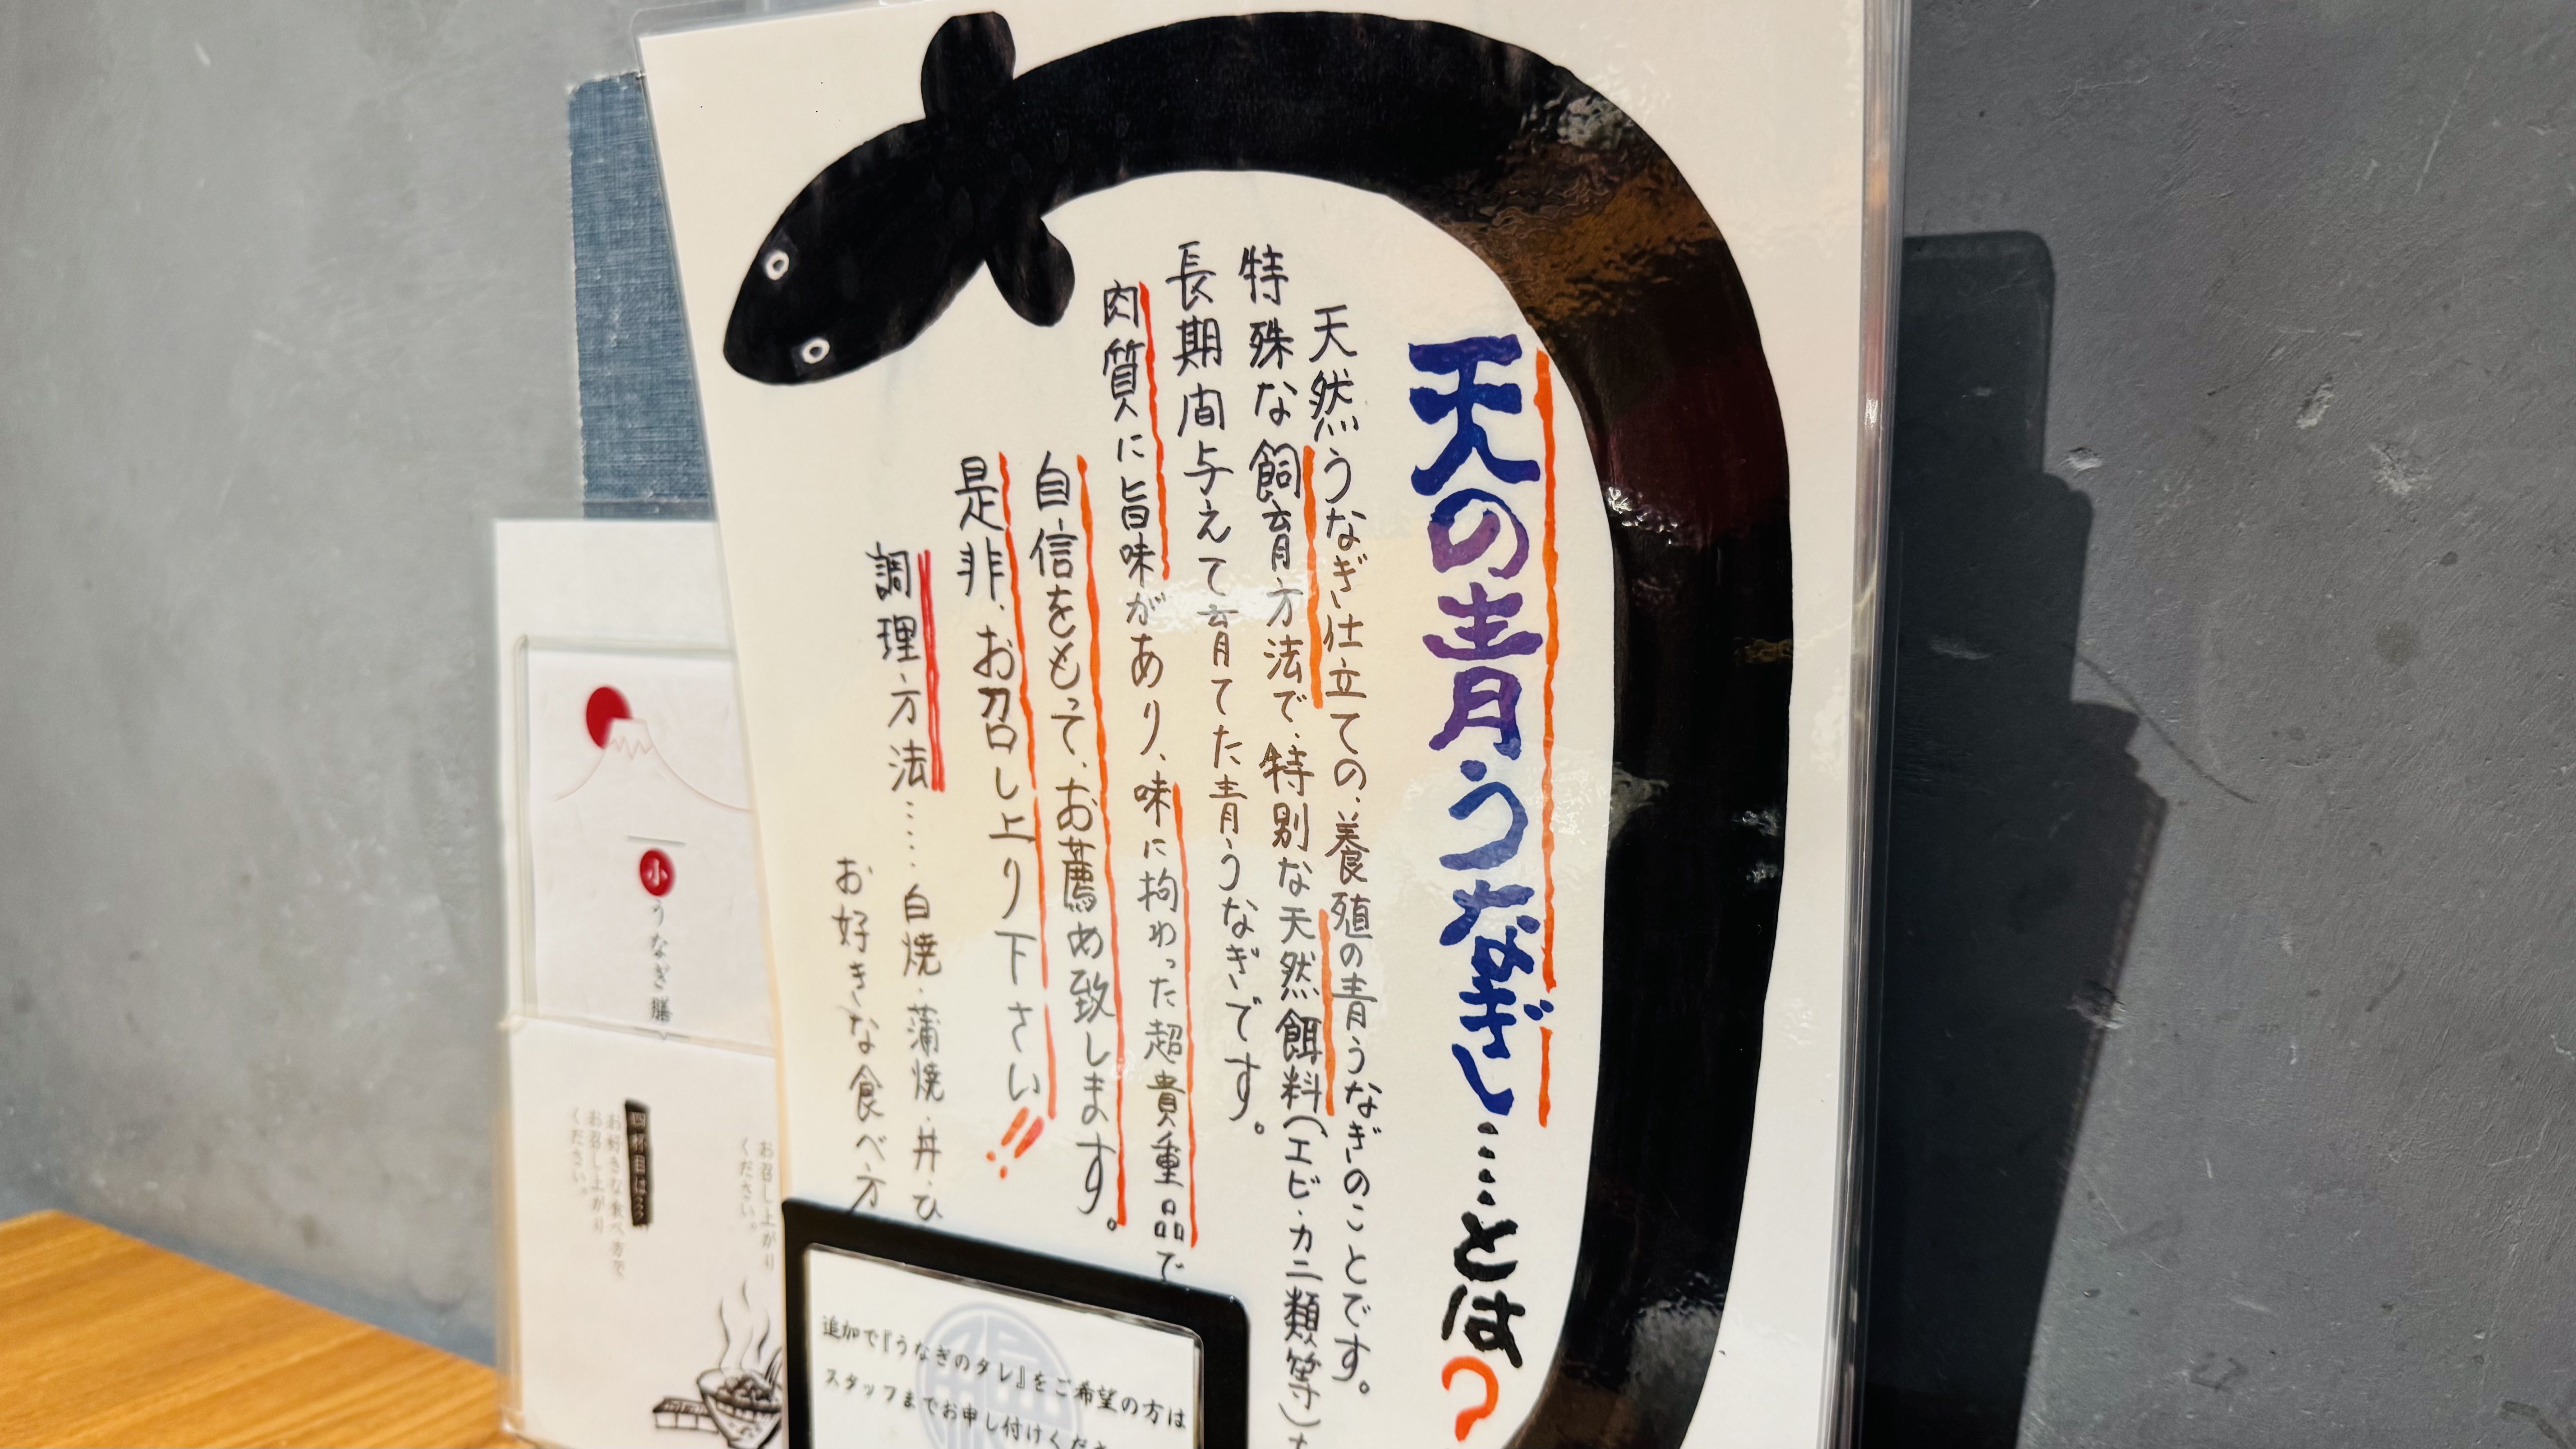 天の青うなぎ……とは?
天然うなぎ仕立ての、養殖の青うなぎのことです。
特殊な飼育方法で、特別な天然餌料(エビ・カニ類等)
長期間与えて育てた青うなぎです。
肉質に旨味があり、味に拘わった超貴重品で
自信をもって、お薦め致します。
是非、お召し上り下さい!!
調理方法……白焼・蒲焼・丼・ひ
お好きな食べ方
追加で『うなぎのタレ』をご希望の方は
スタッフまでお申し付けくださ
小 うなぎ膳
お召し上がり
ください。
四杯目は…
お好きな食べ方で
お召し上がり
ください。